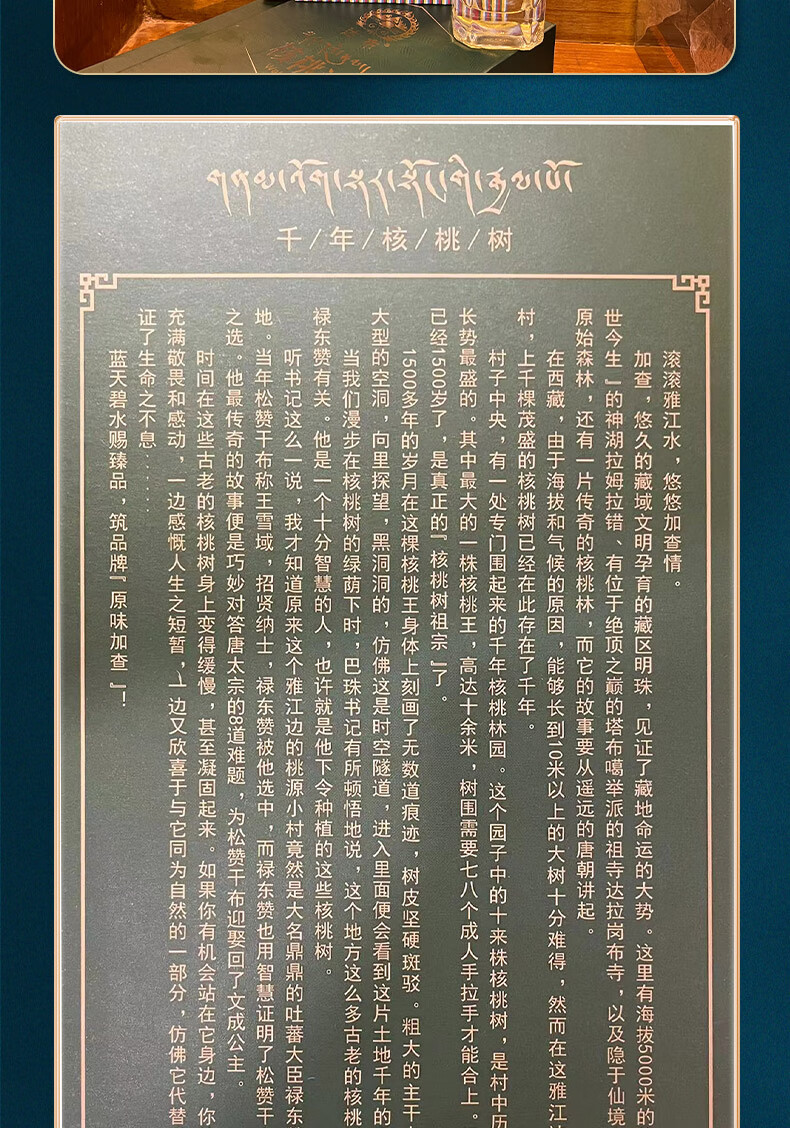 千/年/核/桃/树
滚滚雅江水，悠悠加查情。
加查，悠久的藏域文明孕育的藏区明珠，见证了藏地命运的大势。这里有海拔5000米的
世今生』的神湖拉姆拉错、有位于绝顶之巅的塔布噶举派的祖寺达拉岗布寺，以及隐于仙境
原始森林，还有一片传奇的核桃林，而它的故事要从遥远的唐朝讲起。
在西藏，由于海拔和气候的原因，能够长到10米以上的大树十分难得，然而在这雅江
村，上千棵茂盛的核桃树已经在此存在了千年。
村子中央，有一处专门围起来的千年核桃林园。这个园子中的十来株核桃树，是村中历
长势最盛的。其中最大的一株核桃王，高达十余米，树围需要七八个成人手拉手才能合上。
已经1500岁了，是真正的『核桃树祖宗』了。
1500多年的岁月在这棵核桃王身体上刻画了无数道痕迹，树皮坚硬斑驳。粗大的主干
大型的空洞，向里探望，黑洞洞的，仿佛这是时空隧道，进入里面便会看到这片土地千年的
当我们漫步在核桃树的绿荫下时，巴珠书记有所顿悟地说，这个地方这么多古老的核桃
禄东赞有关。他是一个十分智慧的人，也许就是他下令种植的这些核桃树。
听书记这么一说，我才知道原来这个雅江边的桃源小村竟然是大名鼎鼎的吐蕃大臣禄东
地。当年松赞干布称王雪域，招贤纳士，禄东赞被他选中，而禄东赞也用智慧证明了松赞干
之选。他最传奇的故事便是巧妙对答唐太宗的8道难题，为松赞干布迎娶回了文成公主。
时间在这些古老的核桃树身上变得缓慢，甚至凝固起来。如果你有机会站在它身边，你
充满敬畏和感动，一边感慨人生之短暂，一边又欣喜于与它同为自然的一部分，仿佛它代替
证了生命之不息......
蓝天碧水赐臻品，筑品牌『原味加查』！